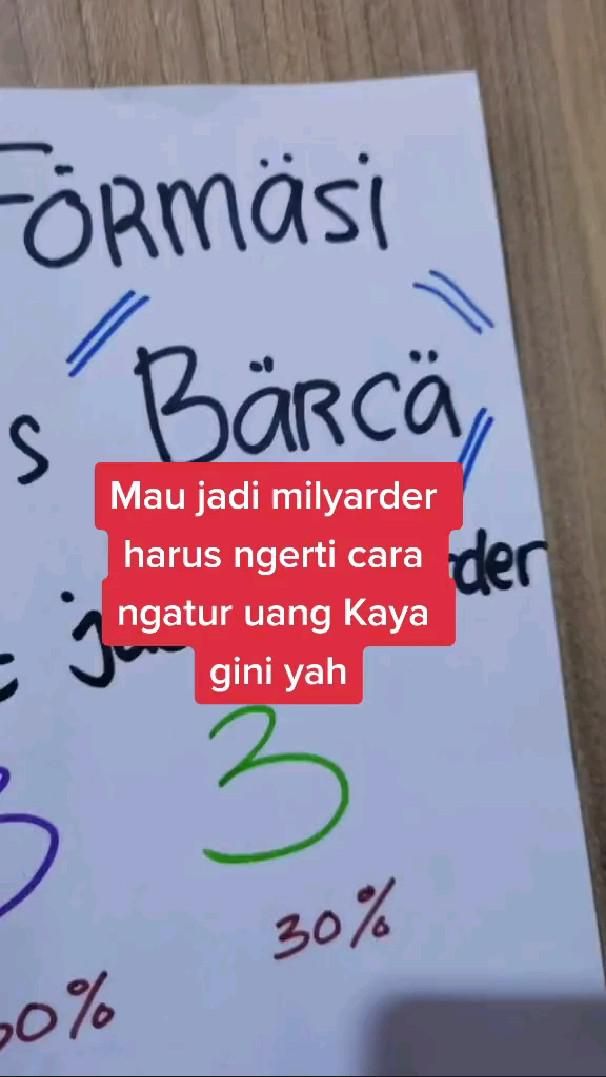 FÖRMäSi
S BäRCä
Mau jadi milyarder
harus ngerti cara
ngatur uang Kaya
gini yah
der
3 3
30%
0%